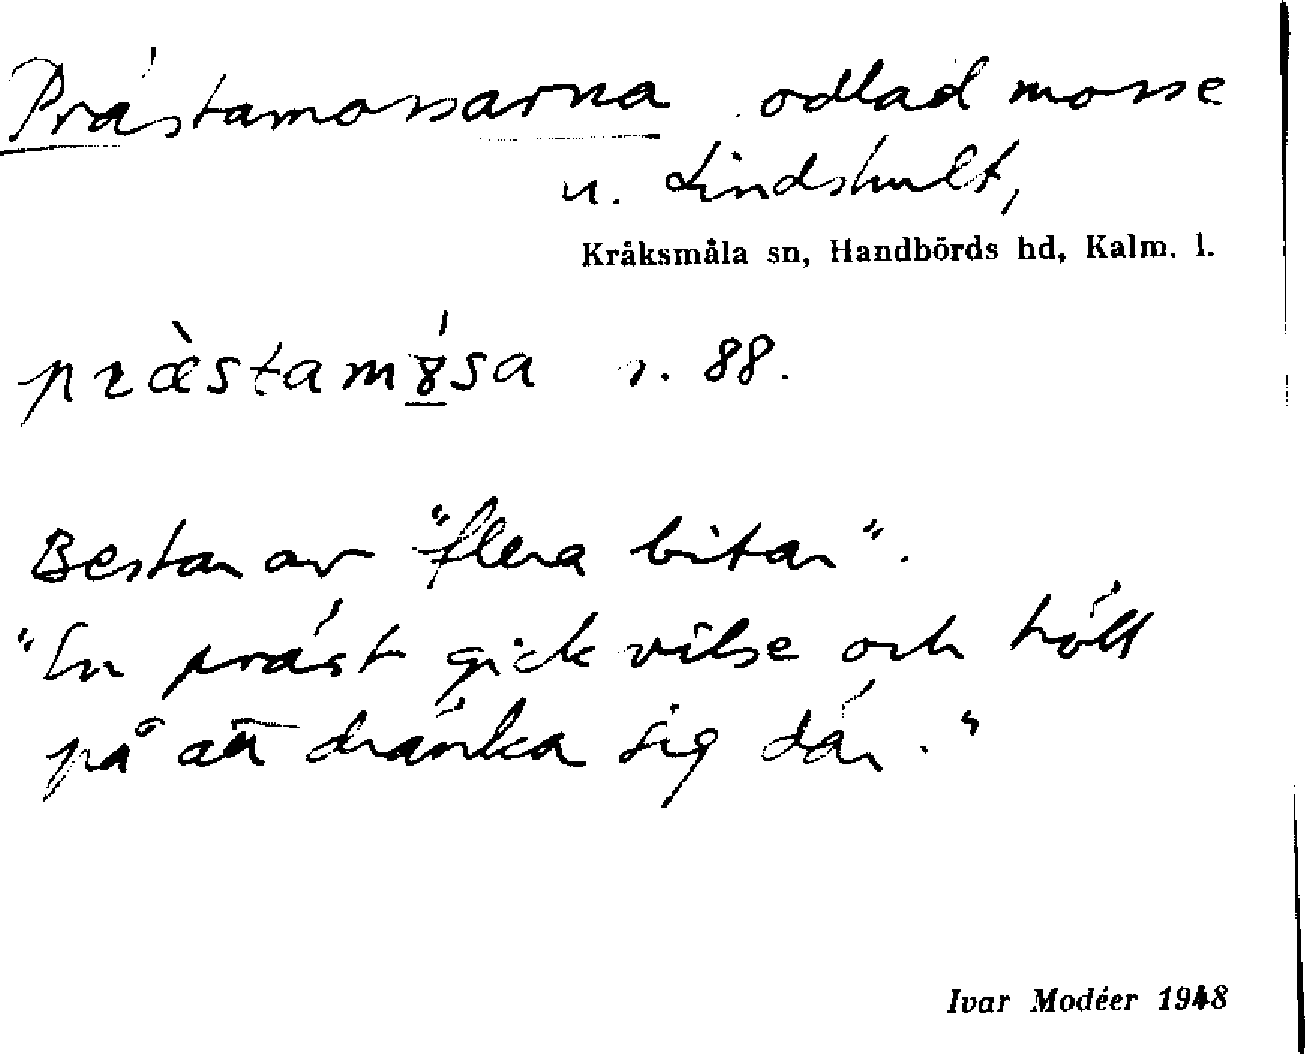 Prästamossarna odlad mosse
u. Lindshult,
Kråksmåla sn, Handbörds hd, Kalm. l.
præ̀stamɤ́sa r. 88.
Bestar av "flera bitar".
"En präst gick vilse och höll
på att dränka sig där."
Ivar Modéer 1948